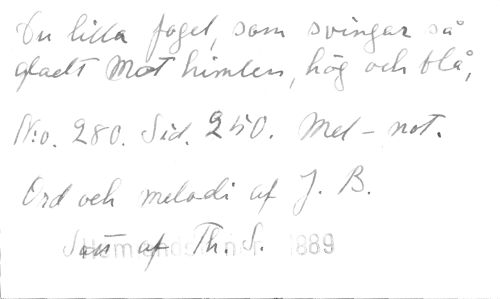 Du lilla fogel, som svingar så
gladt Mot himlen, hög och blå,
N:o. 280. Sid. 250. Mel-not.
Ord och melodi af J. B.
af Th. S. 1889